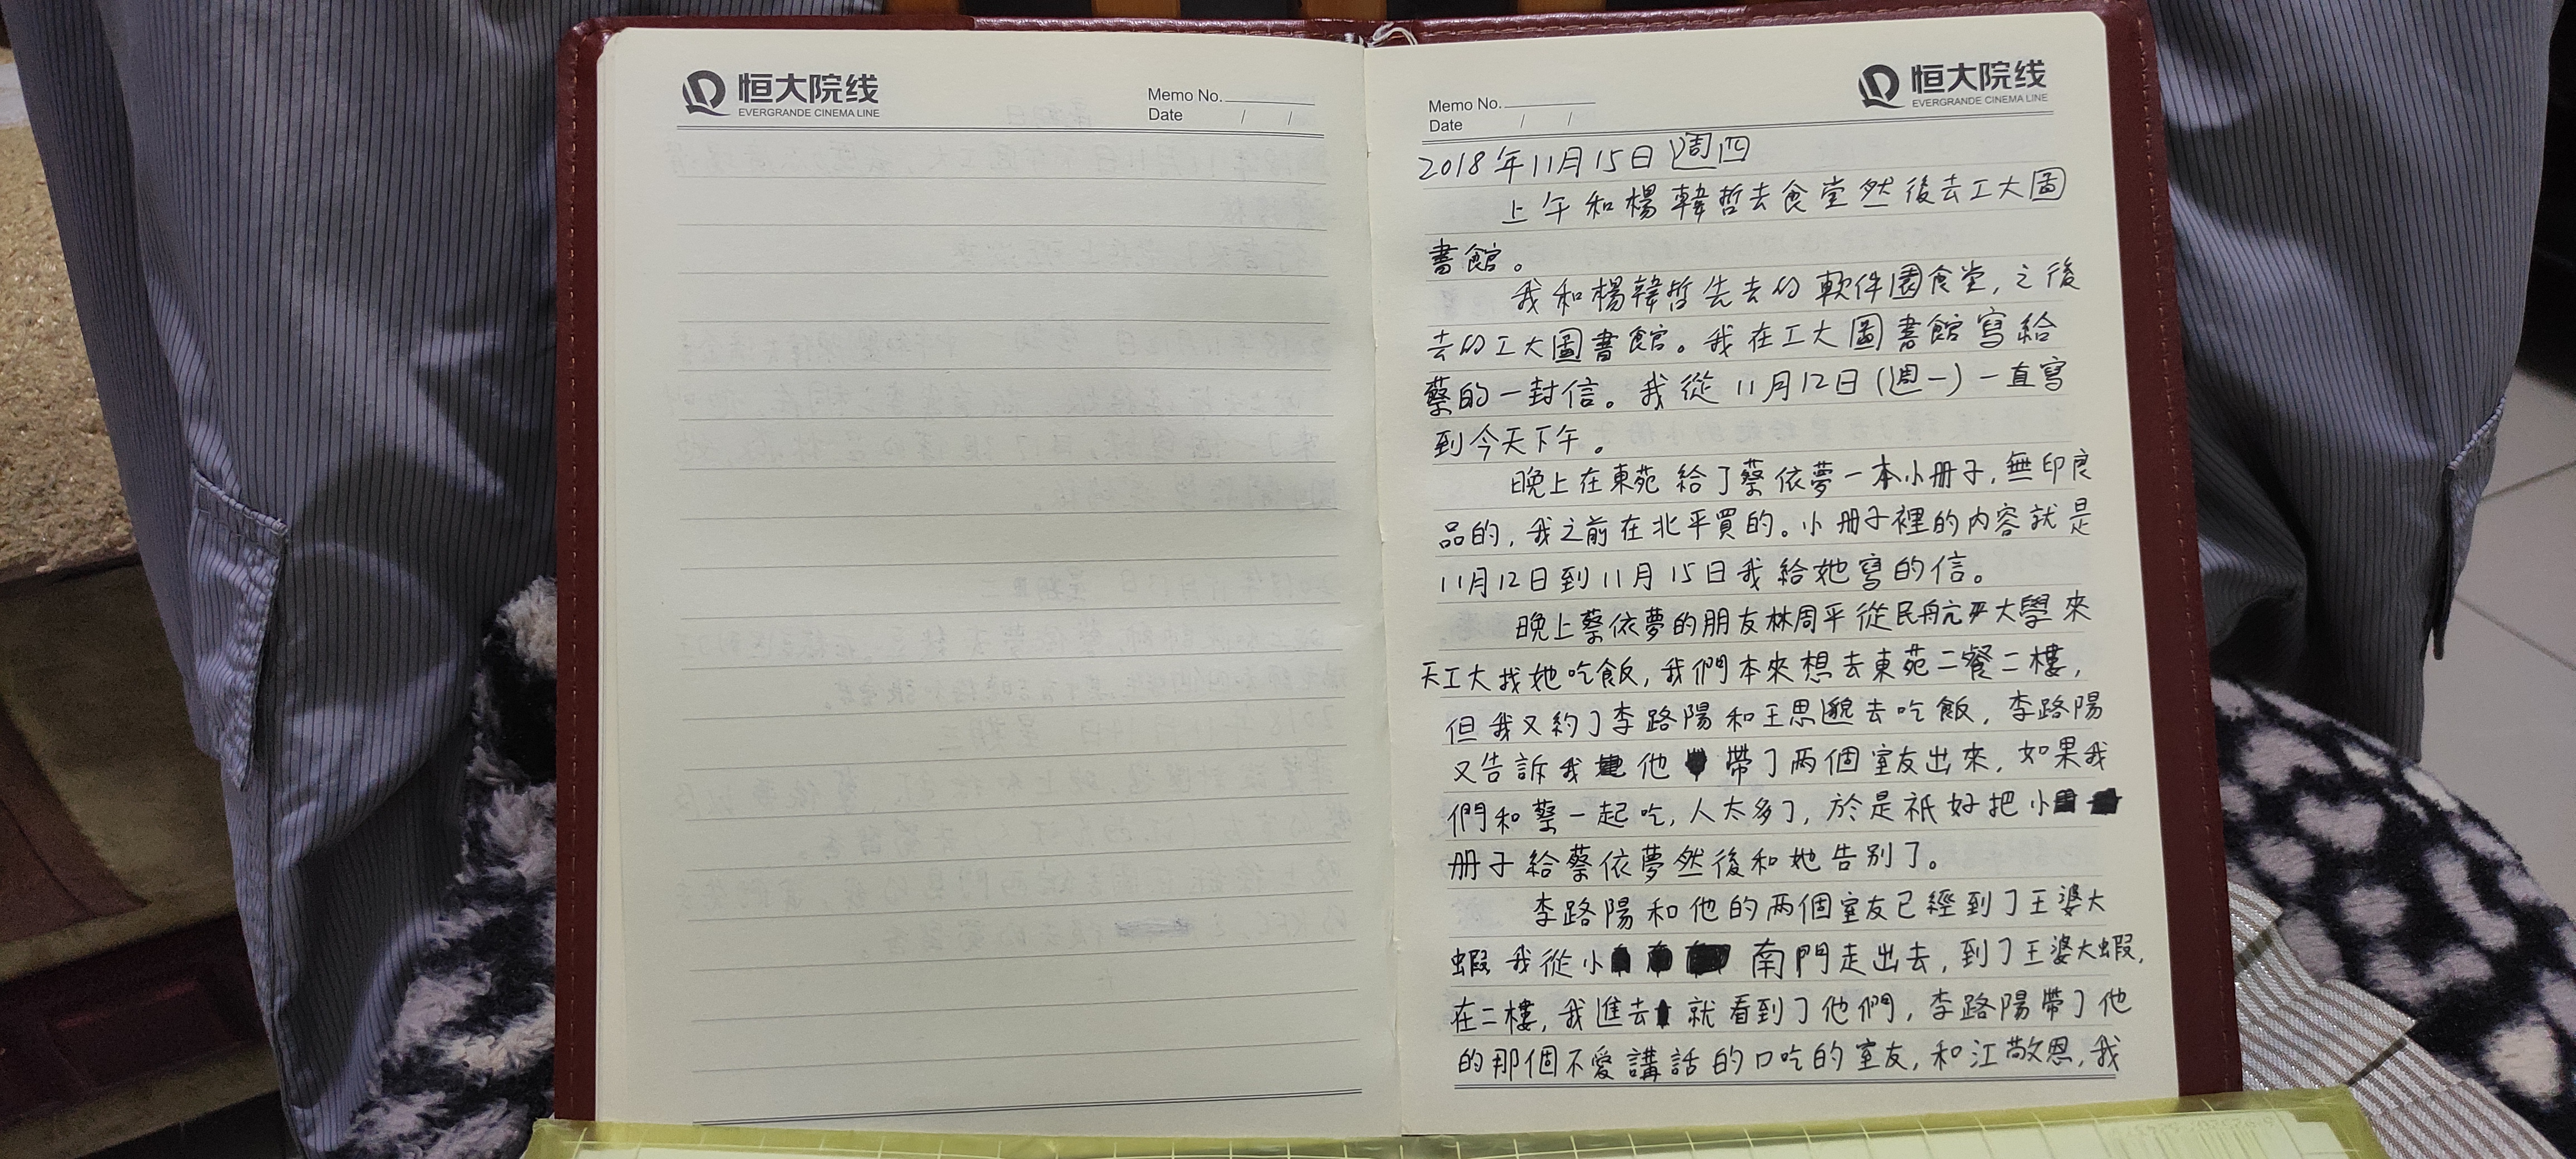 恒大院线
EVERGRANDE CINEMA LINE
Memo No.
Date / /
Memo No.
Date / /
恒大院线
EVERGRANDE CINEMA LINE
2018年11月15日週四
上午和楊韓哲去食堂然後去工大圖
書館。
我和楊韓哲先去的軟件園食堂,之後
去的工大圖書館。我在工大圖書館寫給
蔡的一封信。我從11月12日(週一)一直寫
到今天下午。
晚上在東苑給了蔡依夢一本小册子,無印良
品的,我之前在北平買的。小册子裡的内容就是
11月12日到11月15日我給她寫的信。
晚上蔡依夢的朋友林周平從民航大學來
天工大找她吃飯,我們本來想去東苑二餐二樓,
但我又約了李路陽和王思邈去吃飯,李路陽
又告訴我他帶了两個室友出來,如果我
們和蔡一起吃,人太多了,於是祇好把小
册子給蔡依夢然後和她告别了。
李路陽和他的两個室友已經到了王婆大
蝦我從小南門走出去,到了王婆大蝦,
在二樓,我進去就看到了他們,李路陽帶了他
的那個不愛講話的口吃的室友,和江敬恩,我